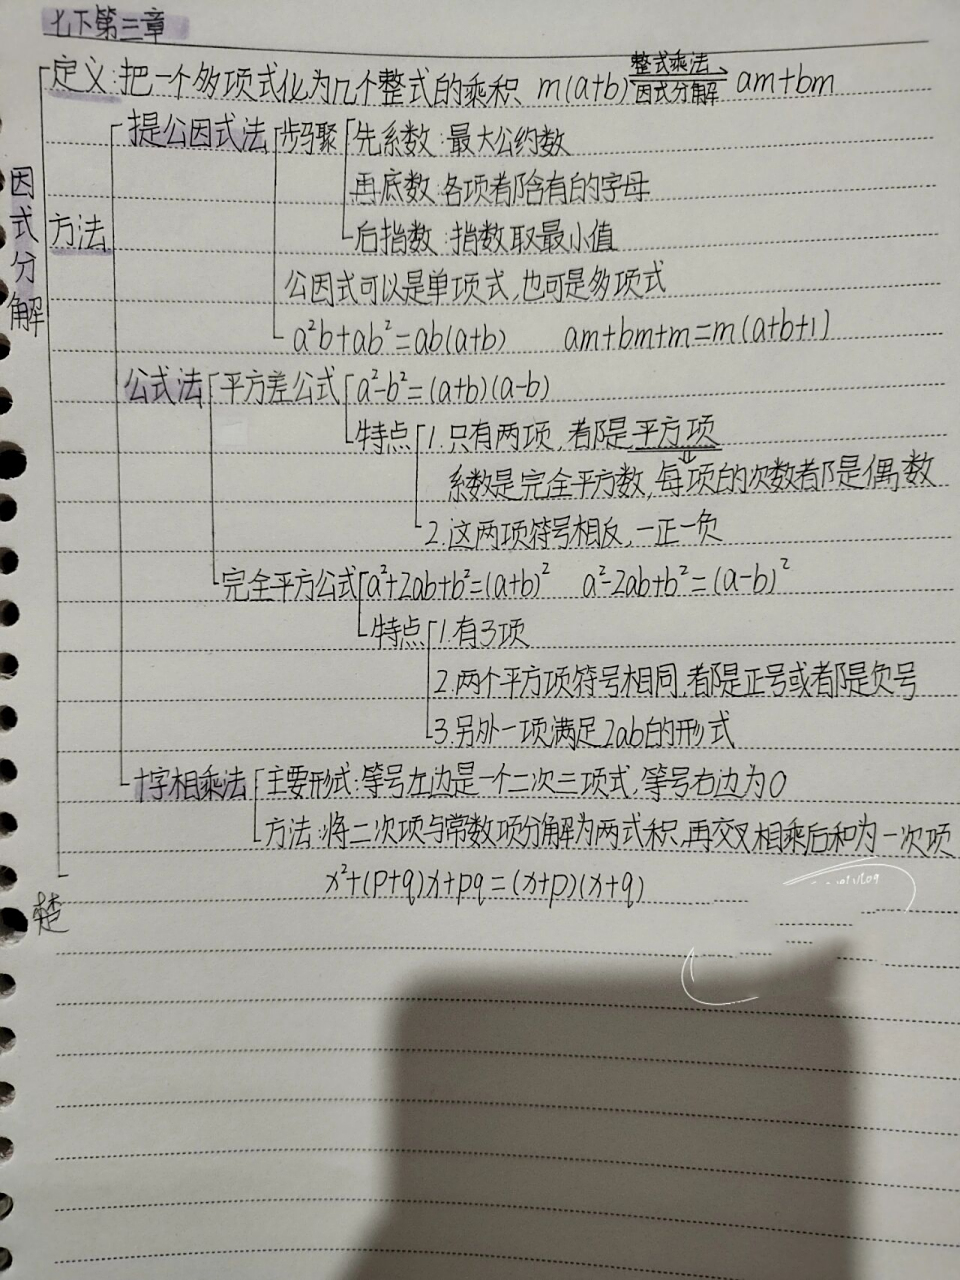 七下第三章
定义:把一个多项式化为几个整式的乘积 m(a+b) 整式乘法 因式分解 am+bm
因式分解
方法
提公因式法 步骤 先系数:最大公约数
再底数:各项都含有的字母
后指数:指数取最小值
公因式可以是单项式,也可是多项式
a²b+ab²=ab(a+b) am+bm+m=m(a+b+1)
公式法 平方差公式 a²-b²=(a+b)(a-b)
特点 1.只有两项,都是平方项
⇓
系数是完全平方数,每项的次数都是偶数
2.这两项符号相反,一正一负
完全平方公式 a²+2ab+b²=(a+b)² a²-2ab+b²=(a-b)²
特点 1.有3项
2.两个平方项符号相同,都是正号或都是负号
3.另外一项满足2ab的形式
十字相乘法 主要形式:等号左边是一个二次三项式,等号右边为0
方法:将二次项与常数项分解为两式积,再交叉相乘后和为一次项
x²+(p+q)x+pq=(x+p)(x+q)
楚